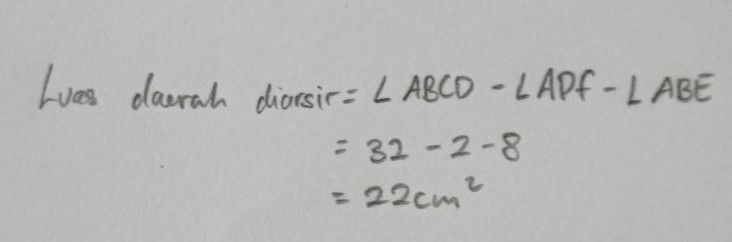 Luas daerah diarsir = L ABCD - L ADF - L ABE
= 32 - 2 - 8
= 22cm²